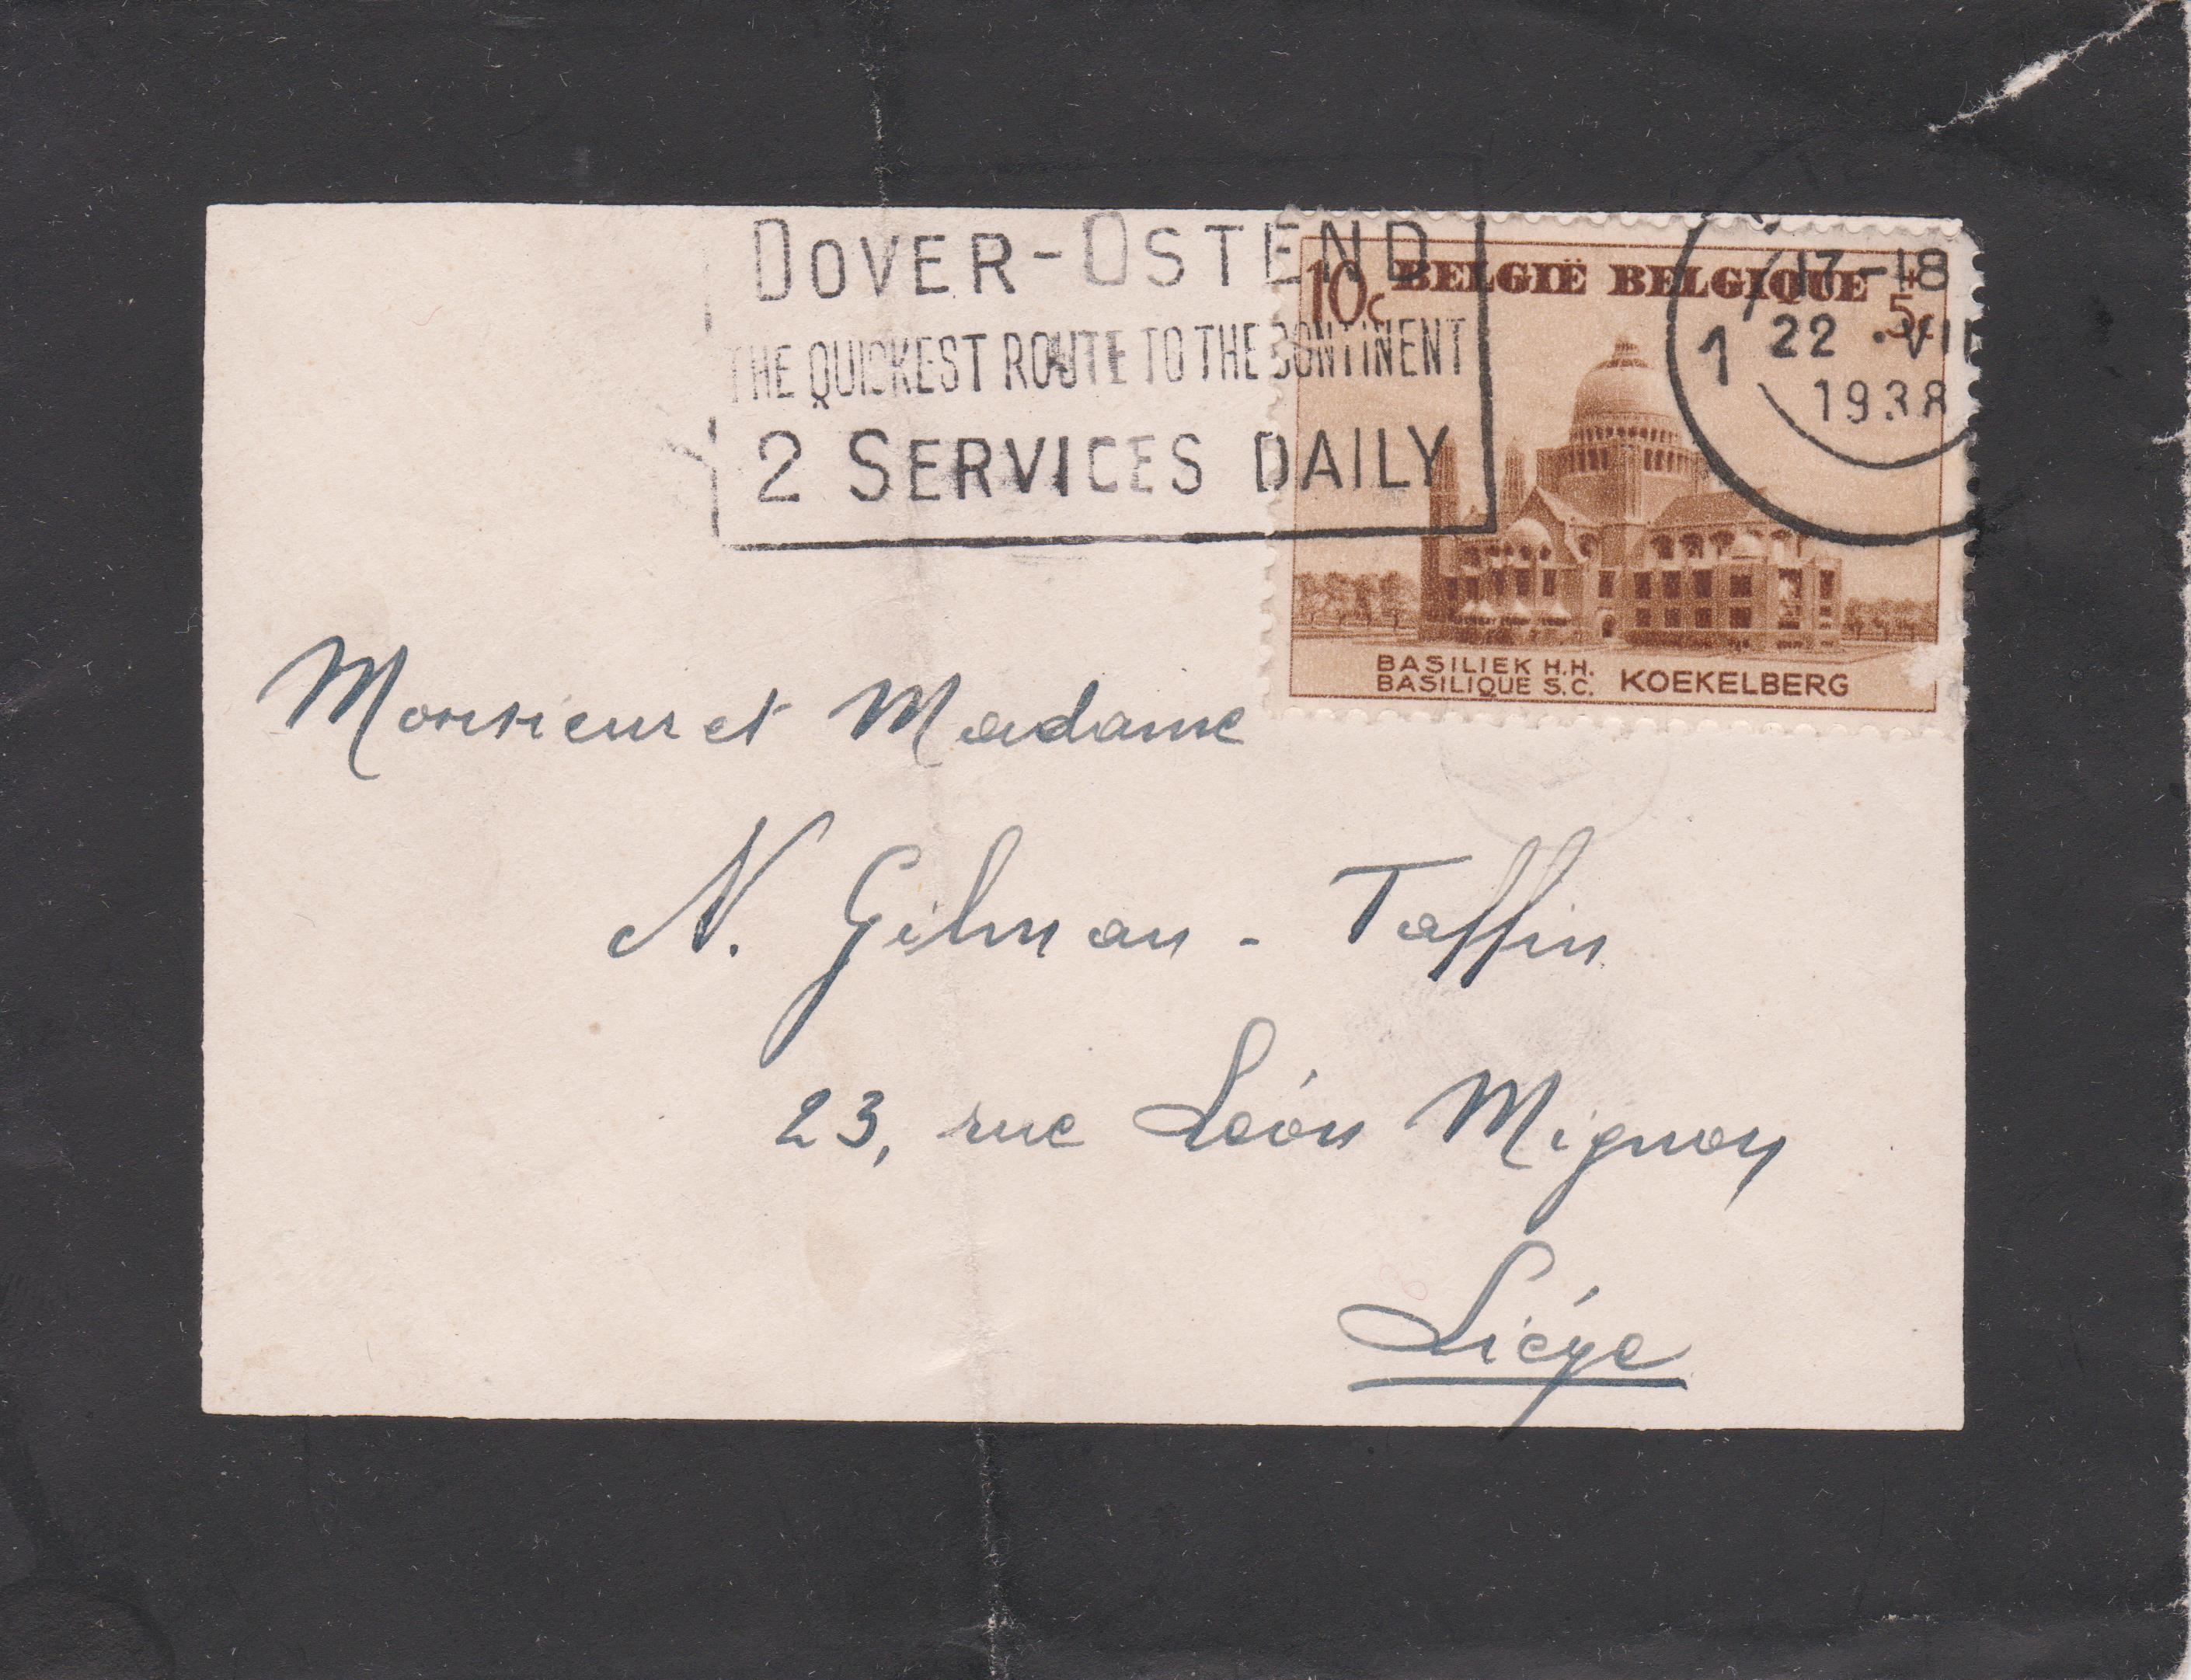 DOVER-OSTEND
THE QUICKEST ROUTE TO THE CONTINENT
2 SERVICES DAILY
10c BELGIË BELGIQUE + 5c
17-18
1 22 . VII
1938
BASILIEK H.H.
BASILIQUE S.C. KOEKELBERG
Monsieur et Madame
N. Gilman - Taffin
23, rue Léon Mignon
Liége